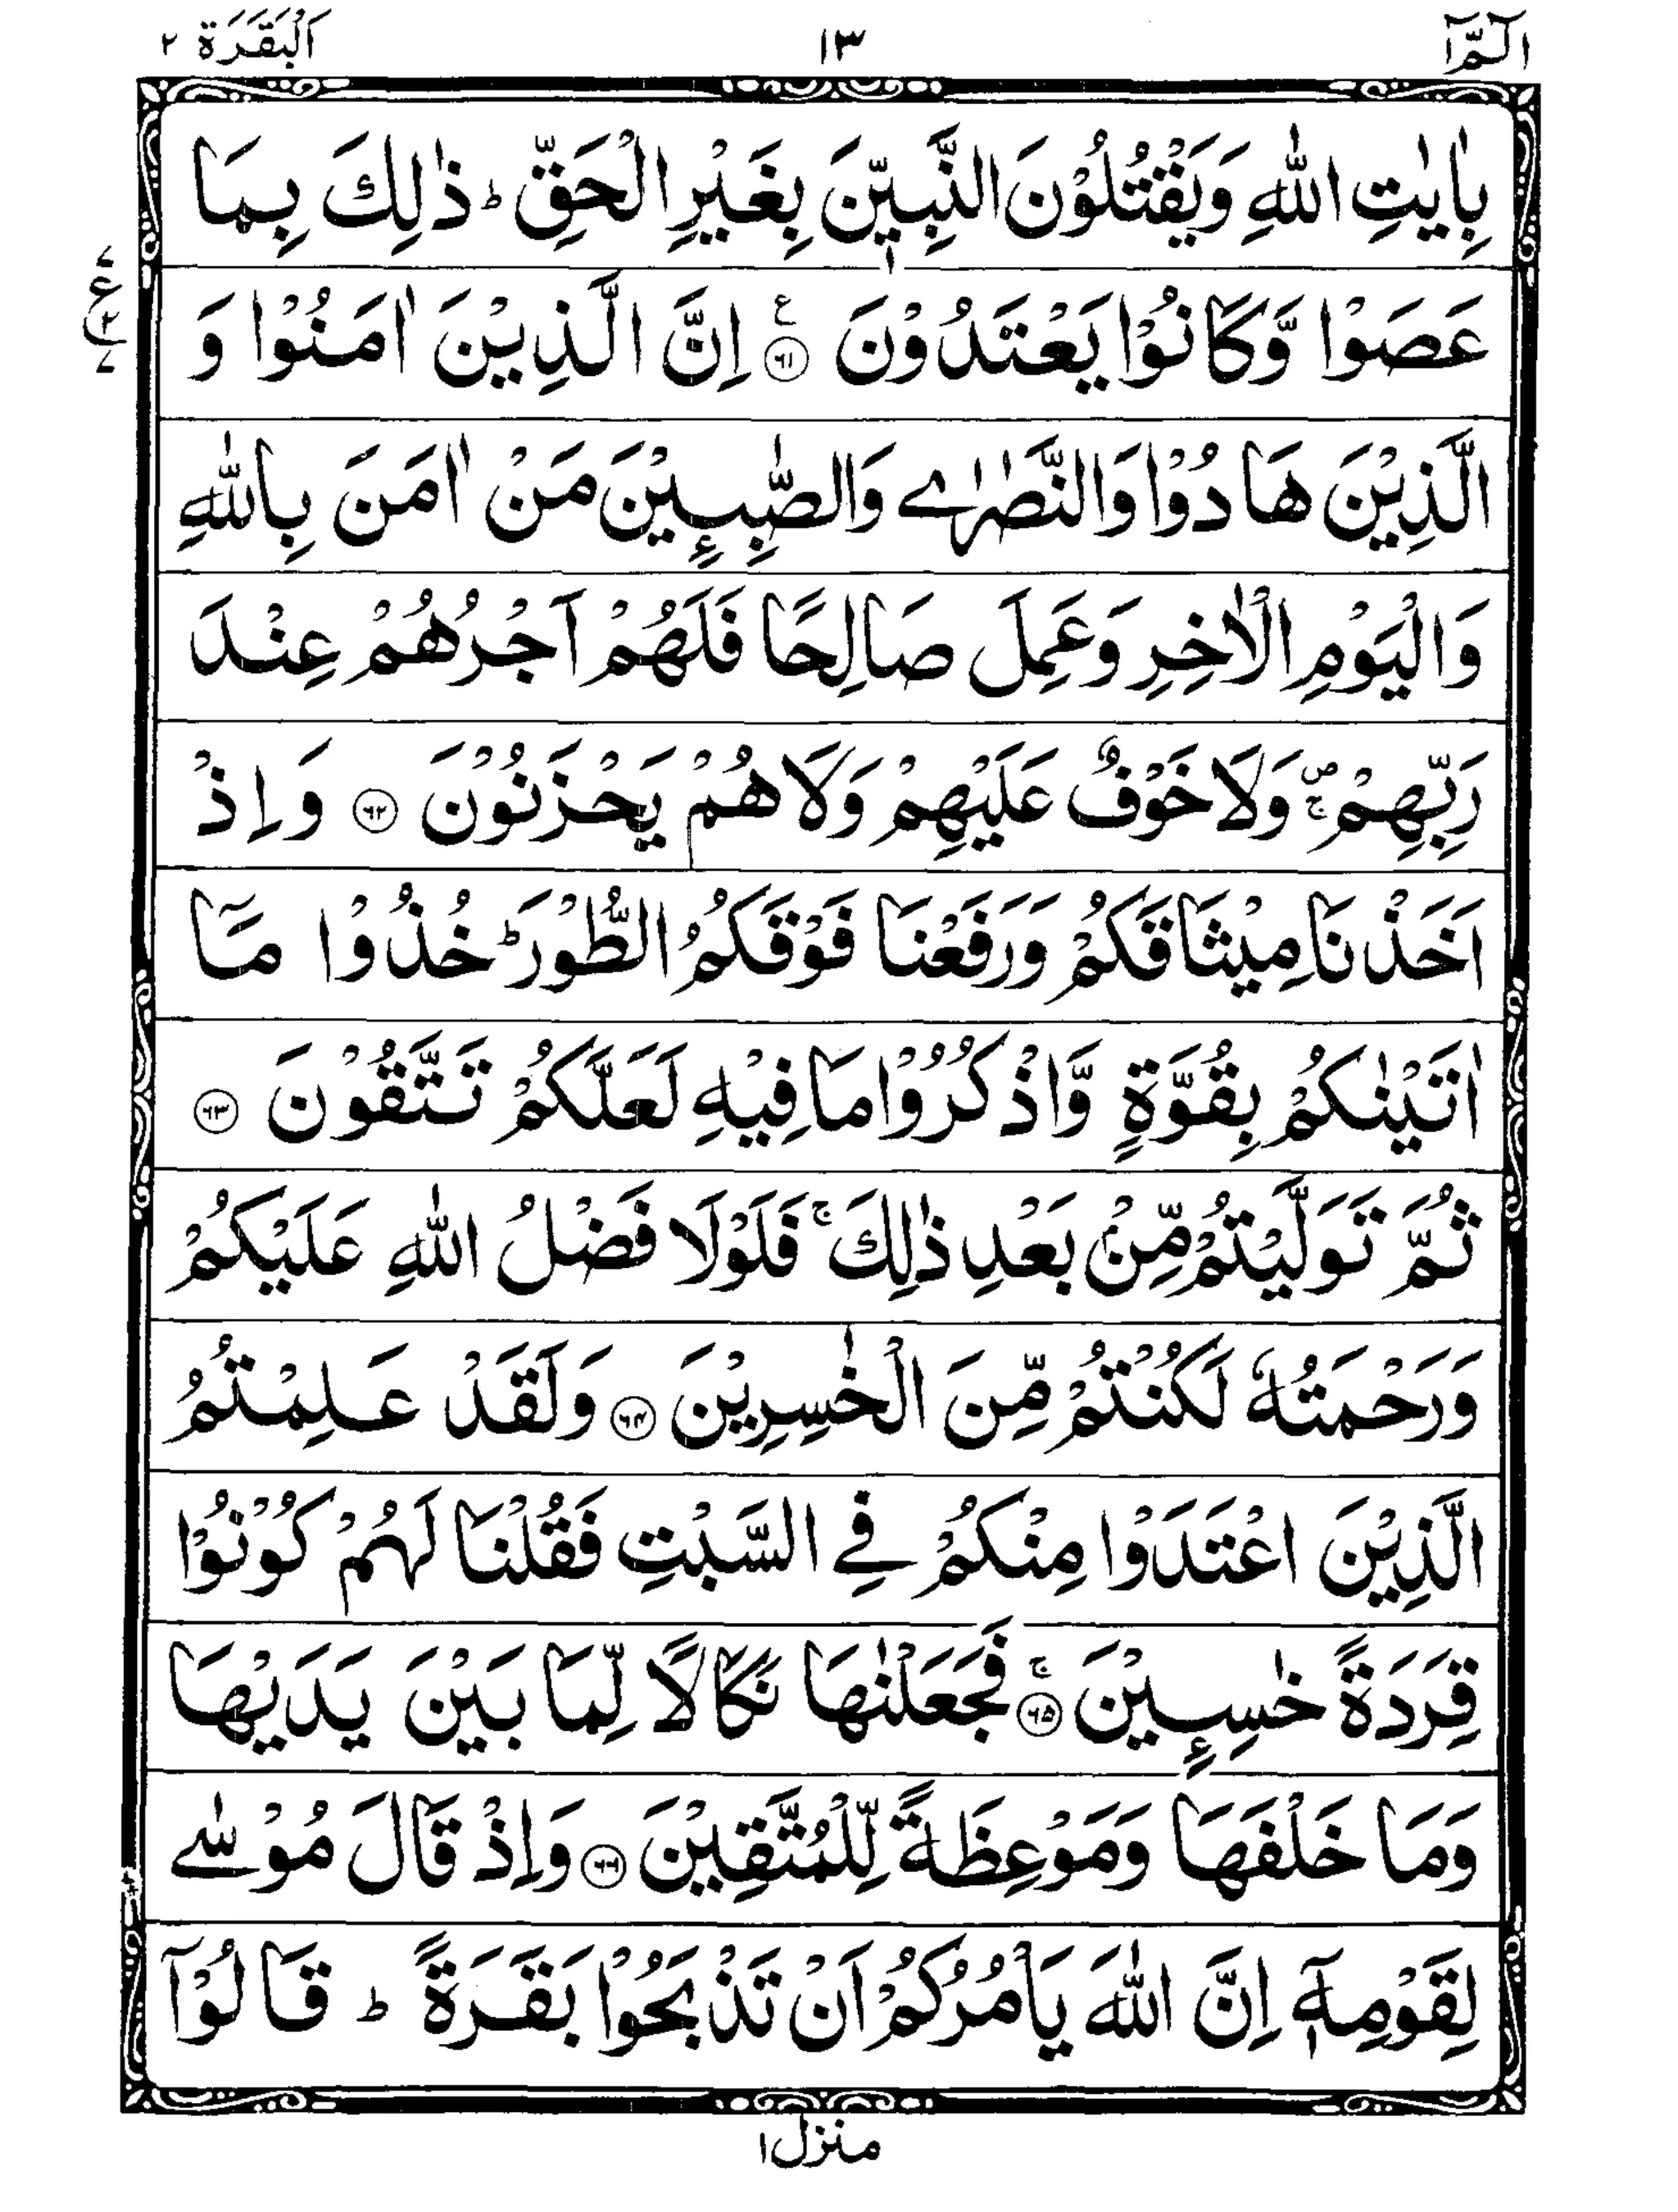 الٓمّٓ ١ ١٣ اَلْبَقَرَة ٢
بِاٰيٰتِ اللّٰهِ وَيَقْتُلُوْنَ النَّبِيّٖنَ بِغَيْرِ الْحَقِّ ؕ ذٰلِكَ بِمَا
عَصَوْا وَّكَانُوْا يَعْتَدُوْنَ ۝٦١ ع اِنَّ الَّذِيْنَ اٰمَنُوْا وَ
ع
الَّذِيْنَ هَادُوْا وَالنَّصٰرٰے وَالصّٰبِـِٕيْنَ مَنْ اٰمَنَ بِاللّٰهِ
وَالْيَوْمِ الْاٰخِرِ وَعَمِلَ صَالِحًا فَلَهُمْ اَجْرُهُمْ عِنْدَ
رَبِّهِمْ ۪ۚ وَلَا خَوْفٌ عَلَيْهِمْ وَلَا هُمْ يَحْزَنُوْنَ ۝٦٢ وَاِذْ
اَخَذْنَا مِيْثَاقَكُمْ وَرَفَعْنَا فَوْقَكُمُ الطُّوْرَ ؕ خُذُوْا مَآ
اٰتَيْنٰكُمْ بِقُوَّةٍ وَّاذْكُرُوْا مَا فِيْهِ لَعَلَّكُمْ تَتَّقُوْنَ ۝٦٣
ثُمَّ تَوَلَّيْتُمْ مِّنْۢ بَعْدِ ذٰلِكَ ۚ فَلَوْلَا فَضْلُ اللّٰهِ عَلَيْكُمْ
وَرَحْمَتُهٗ لَكُنْتُمْ مِّنَ الْخٰسِرِيْنَ ۝٦٤ وَلَقَدْ عَلِمْتُمُ
الَّذِيْنَ اعْتَدَوْا مِنْكُمْ فِے السَّبْتِ فَقُلْنَا لَهُمْ كُوْنُوْا
قِرَدَةً خٰسِـِٕيْنَ ۝٦٥ ۚ فَجَعَلْنٰهَا نَكَالًا لِّمَا بَيْنَ يَدَيْهَا
وَمَا خَلْفَهَا وَمَوْعِظَةً لِّلْمُتَّقِيْنَ ۝٦٦ وَاِذْ قَالَ مُوْسٰے
لِقَوْمِهٖٓ اِنَّ اللّٰهَ يَاْمُرُكُمْ اَنْ تَذْبَحُوْا بَقَرَةً ؕ قَالُوْٓا
منزل ١